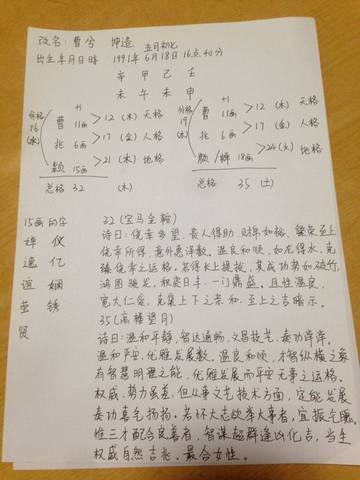 改名：曹兮 坤造 五月初七
出生年月日时 1991年6月18日16点40分
辛 甲 己 壬
未 午 未 申
+1 +1
曹 11画 >12 (木) 天格 曹 11画 >12 (木) 天格
外格 16 (水) 兆 6画 >17 (金) 人格 外格 19 (水) 兆 6画 >17 (金) 人格
颖 15画 >21 (木) 地格 颜/ 18画 >24 (火) 地格
总格 32 (木) 总格 35 (土)
15画的字
禅 仪
逸 亿
逗 娴
莹 锈
贤
32 (宝马金鞍)
诗曰：侥幸多望，贵人得助，财帛如裕，繁荣至上
侥幸所得，意外惠泽数。温良和顺，如龙得水，克
臻侥幸之运格。若得长上提拔，其成功势如破竹，
鸿图骏发，积卖日丰，一门鼎盛。且性温良，
宽大仁爱，克集上下之亲和，至上之吉暗示。
35 (高楼望月)
诗曰：温和平静，智达通畅，文昌技艺，奏功洋洋。
温和声安，优雅发展数。温良和顺，才智纵横之象
有智慧明理之能，优雅发展而平安无事之运格。
权威、势力虽差，但从事文艺技术方面，定能发展
奏功意气扬扬。若怀大志欲举大事者，宜振气魄。
惟三才配合良善者，智谋超群逢凶化吉，当生
权威自然吉兆。最合女性。